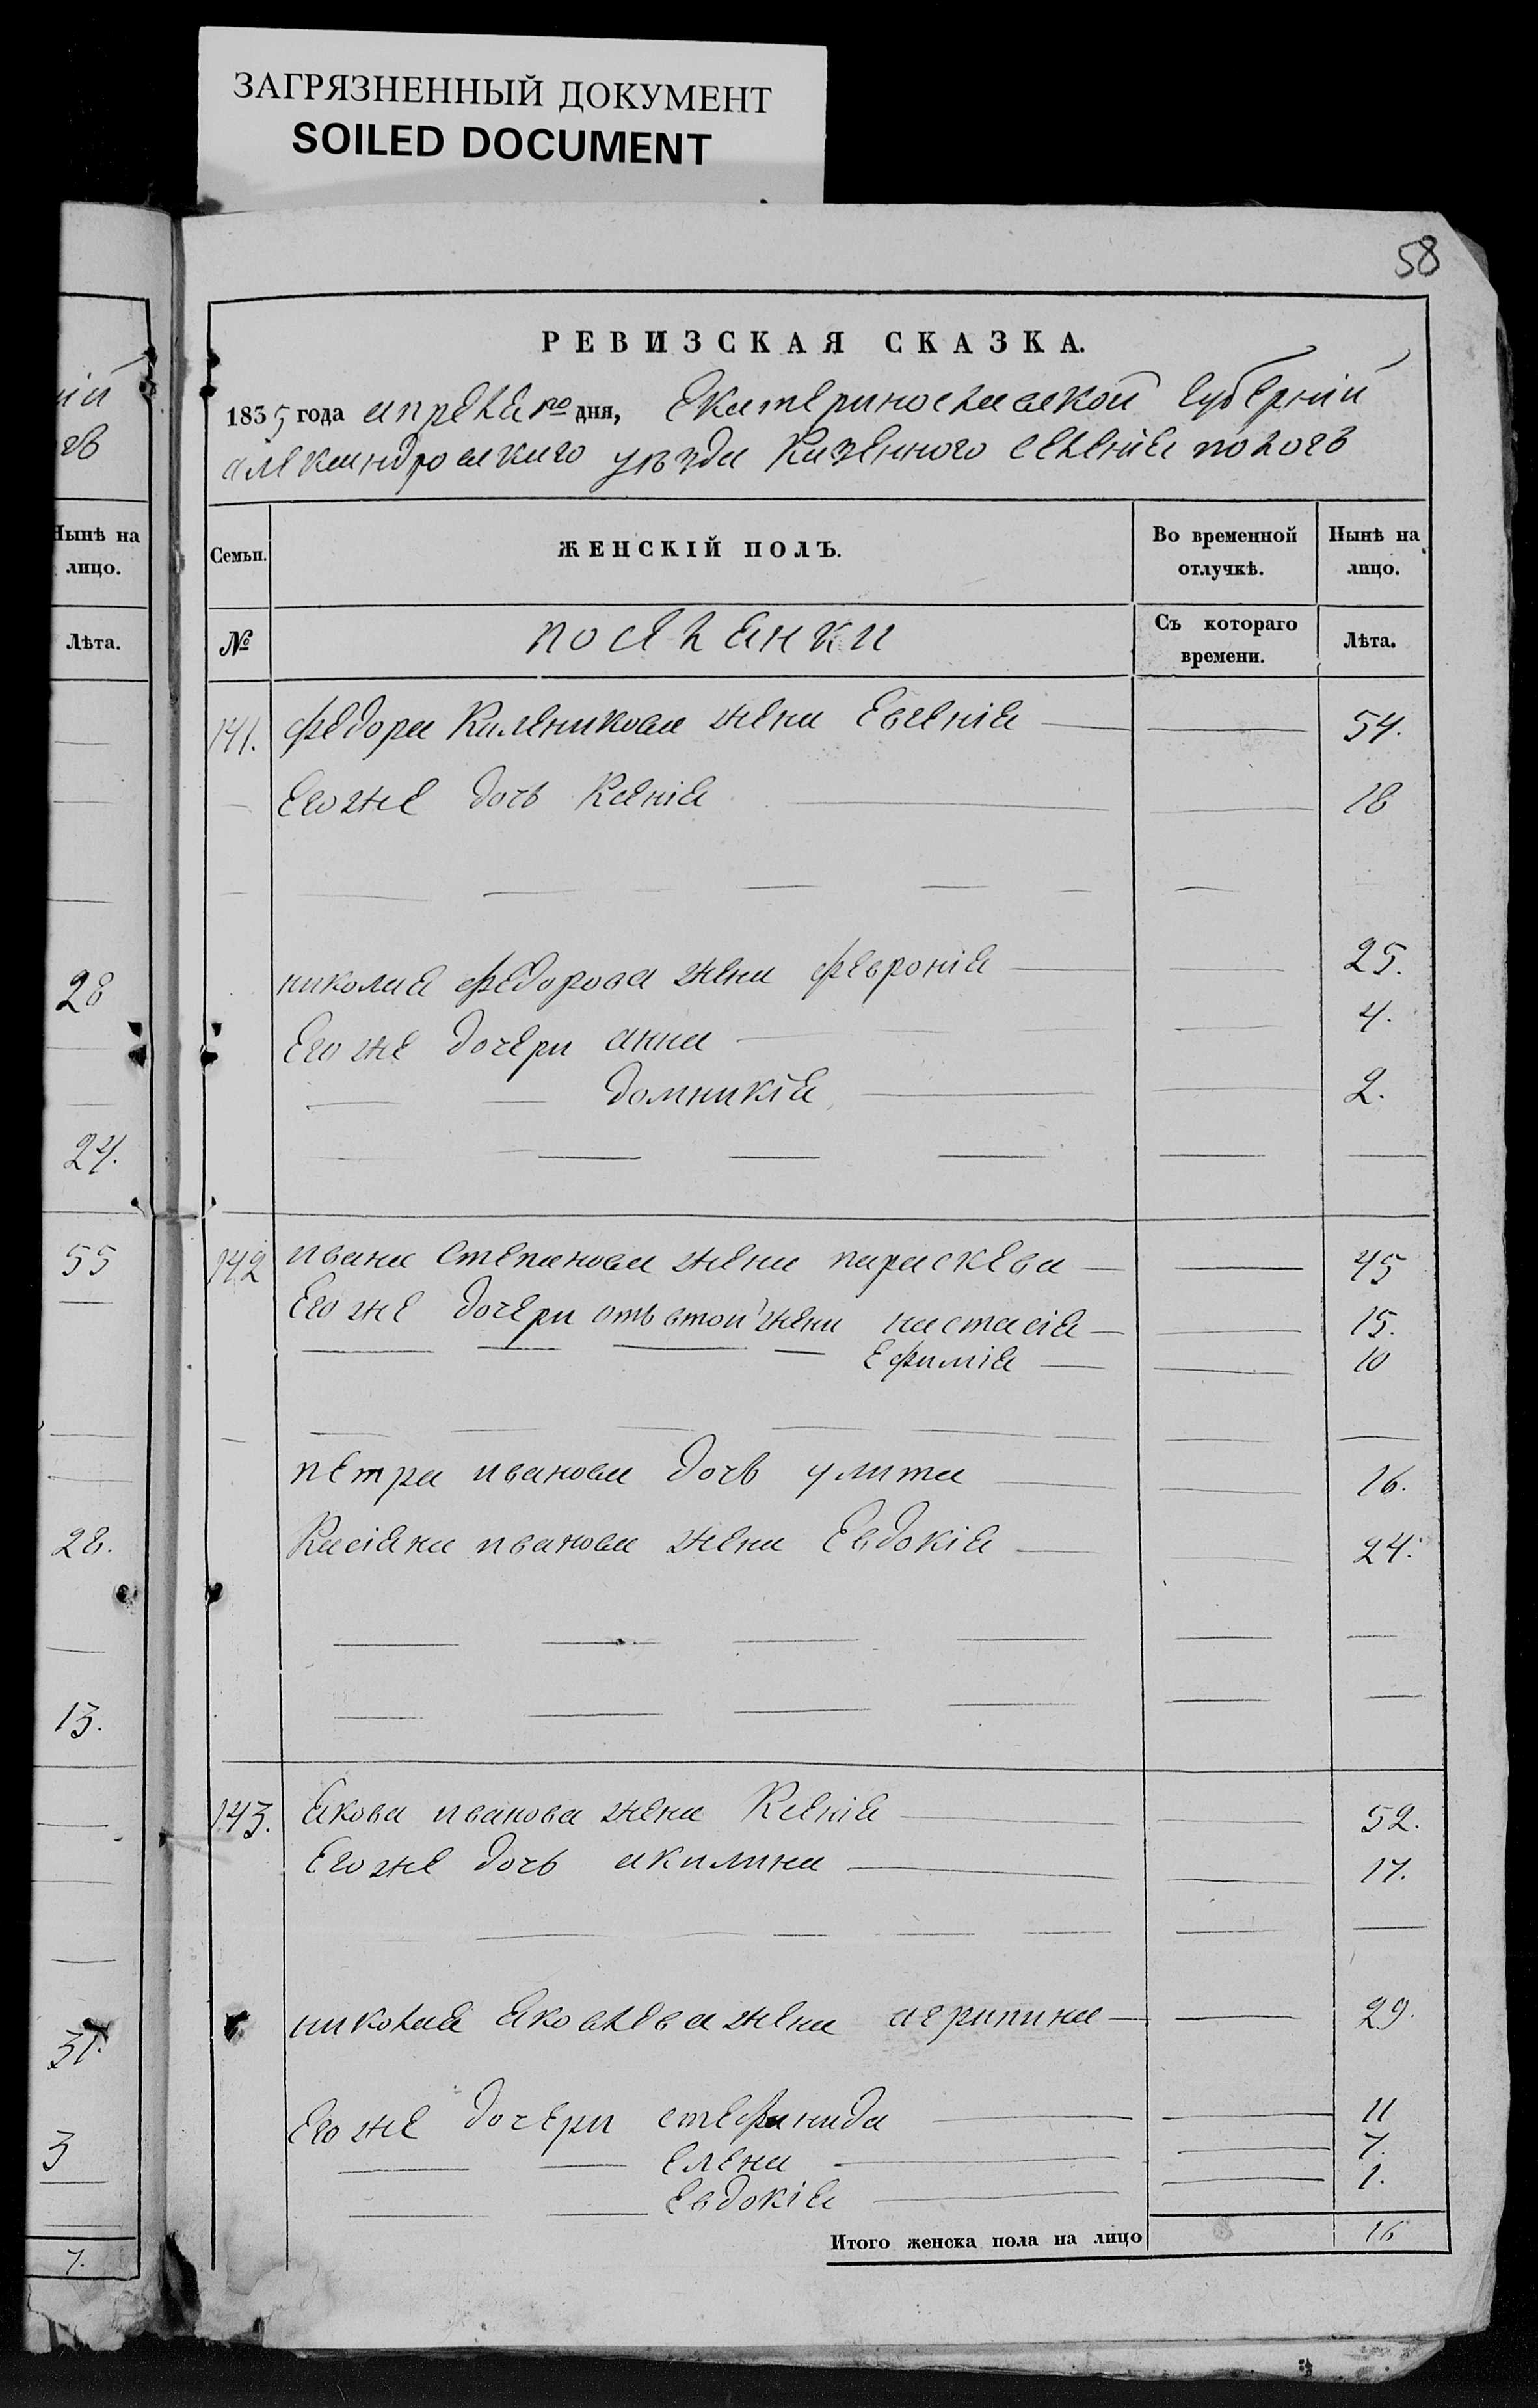 ЗАГРЯЗНЕННЫЙ ДОКУМЕНТ
SOILED DOCUMENT
58
РЕВИЗСКАЯ СКАЗКА.
1835 года апреля го дня, Екатеринославской губерній
александровскаго уѣзда Казенного селенія пологъ
Семьи. ЖЕНСКІЙ ПОЛЪ. Во временной отлучкѣ. Нынѣ на лицо.
№ поселянки Съ котораго времени. Лѣта.
141. Федора Каленикова жена Евгенія 54.
Его же дочь Ксенія 18
николая Федорова жена февронія 25.
Его же дочери анна 4.
домникія 2.
142 ивана Степанова жена параскева 45
Его же дочери отъ втой жены настасія 15.
Ефимія 10
петра иванова дочь улита 16.
Касіяна иванова жена Евдокія 24.
143. Якова иванова жена Ксенія 52.
Его же дочь акилина 17.
николая Яковлева жена агрипина 29.
Его же дочери стефанида 11
Елена 7.
Евдокія 1.
Итого женска пола на лицо 16
Нынѣ на
лицо.
Лѣта.
28
24.
55
28.
13.
3
7.